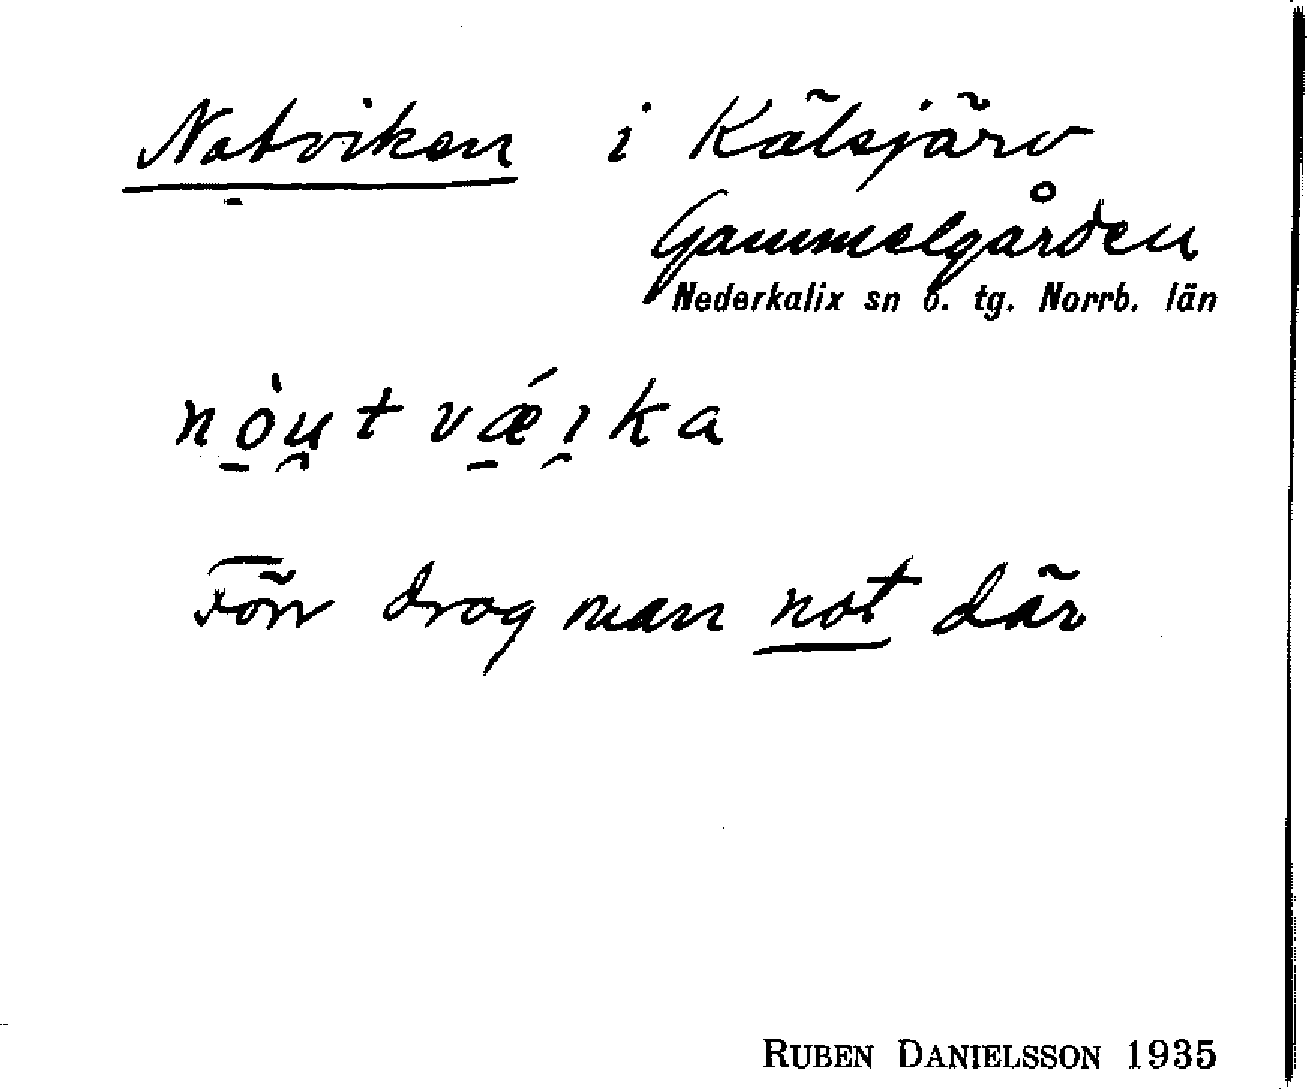 Notviken i Kälsjärv
Gammelgården
Nederkalix sn ö. tg. Norrb. län
nò̱u̯t vǽ̱ı̯ka
Förr drog man not där
RUBEN DANIELSSON 1935